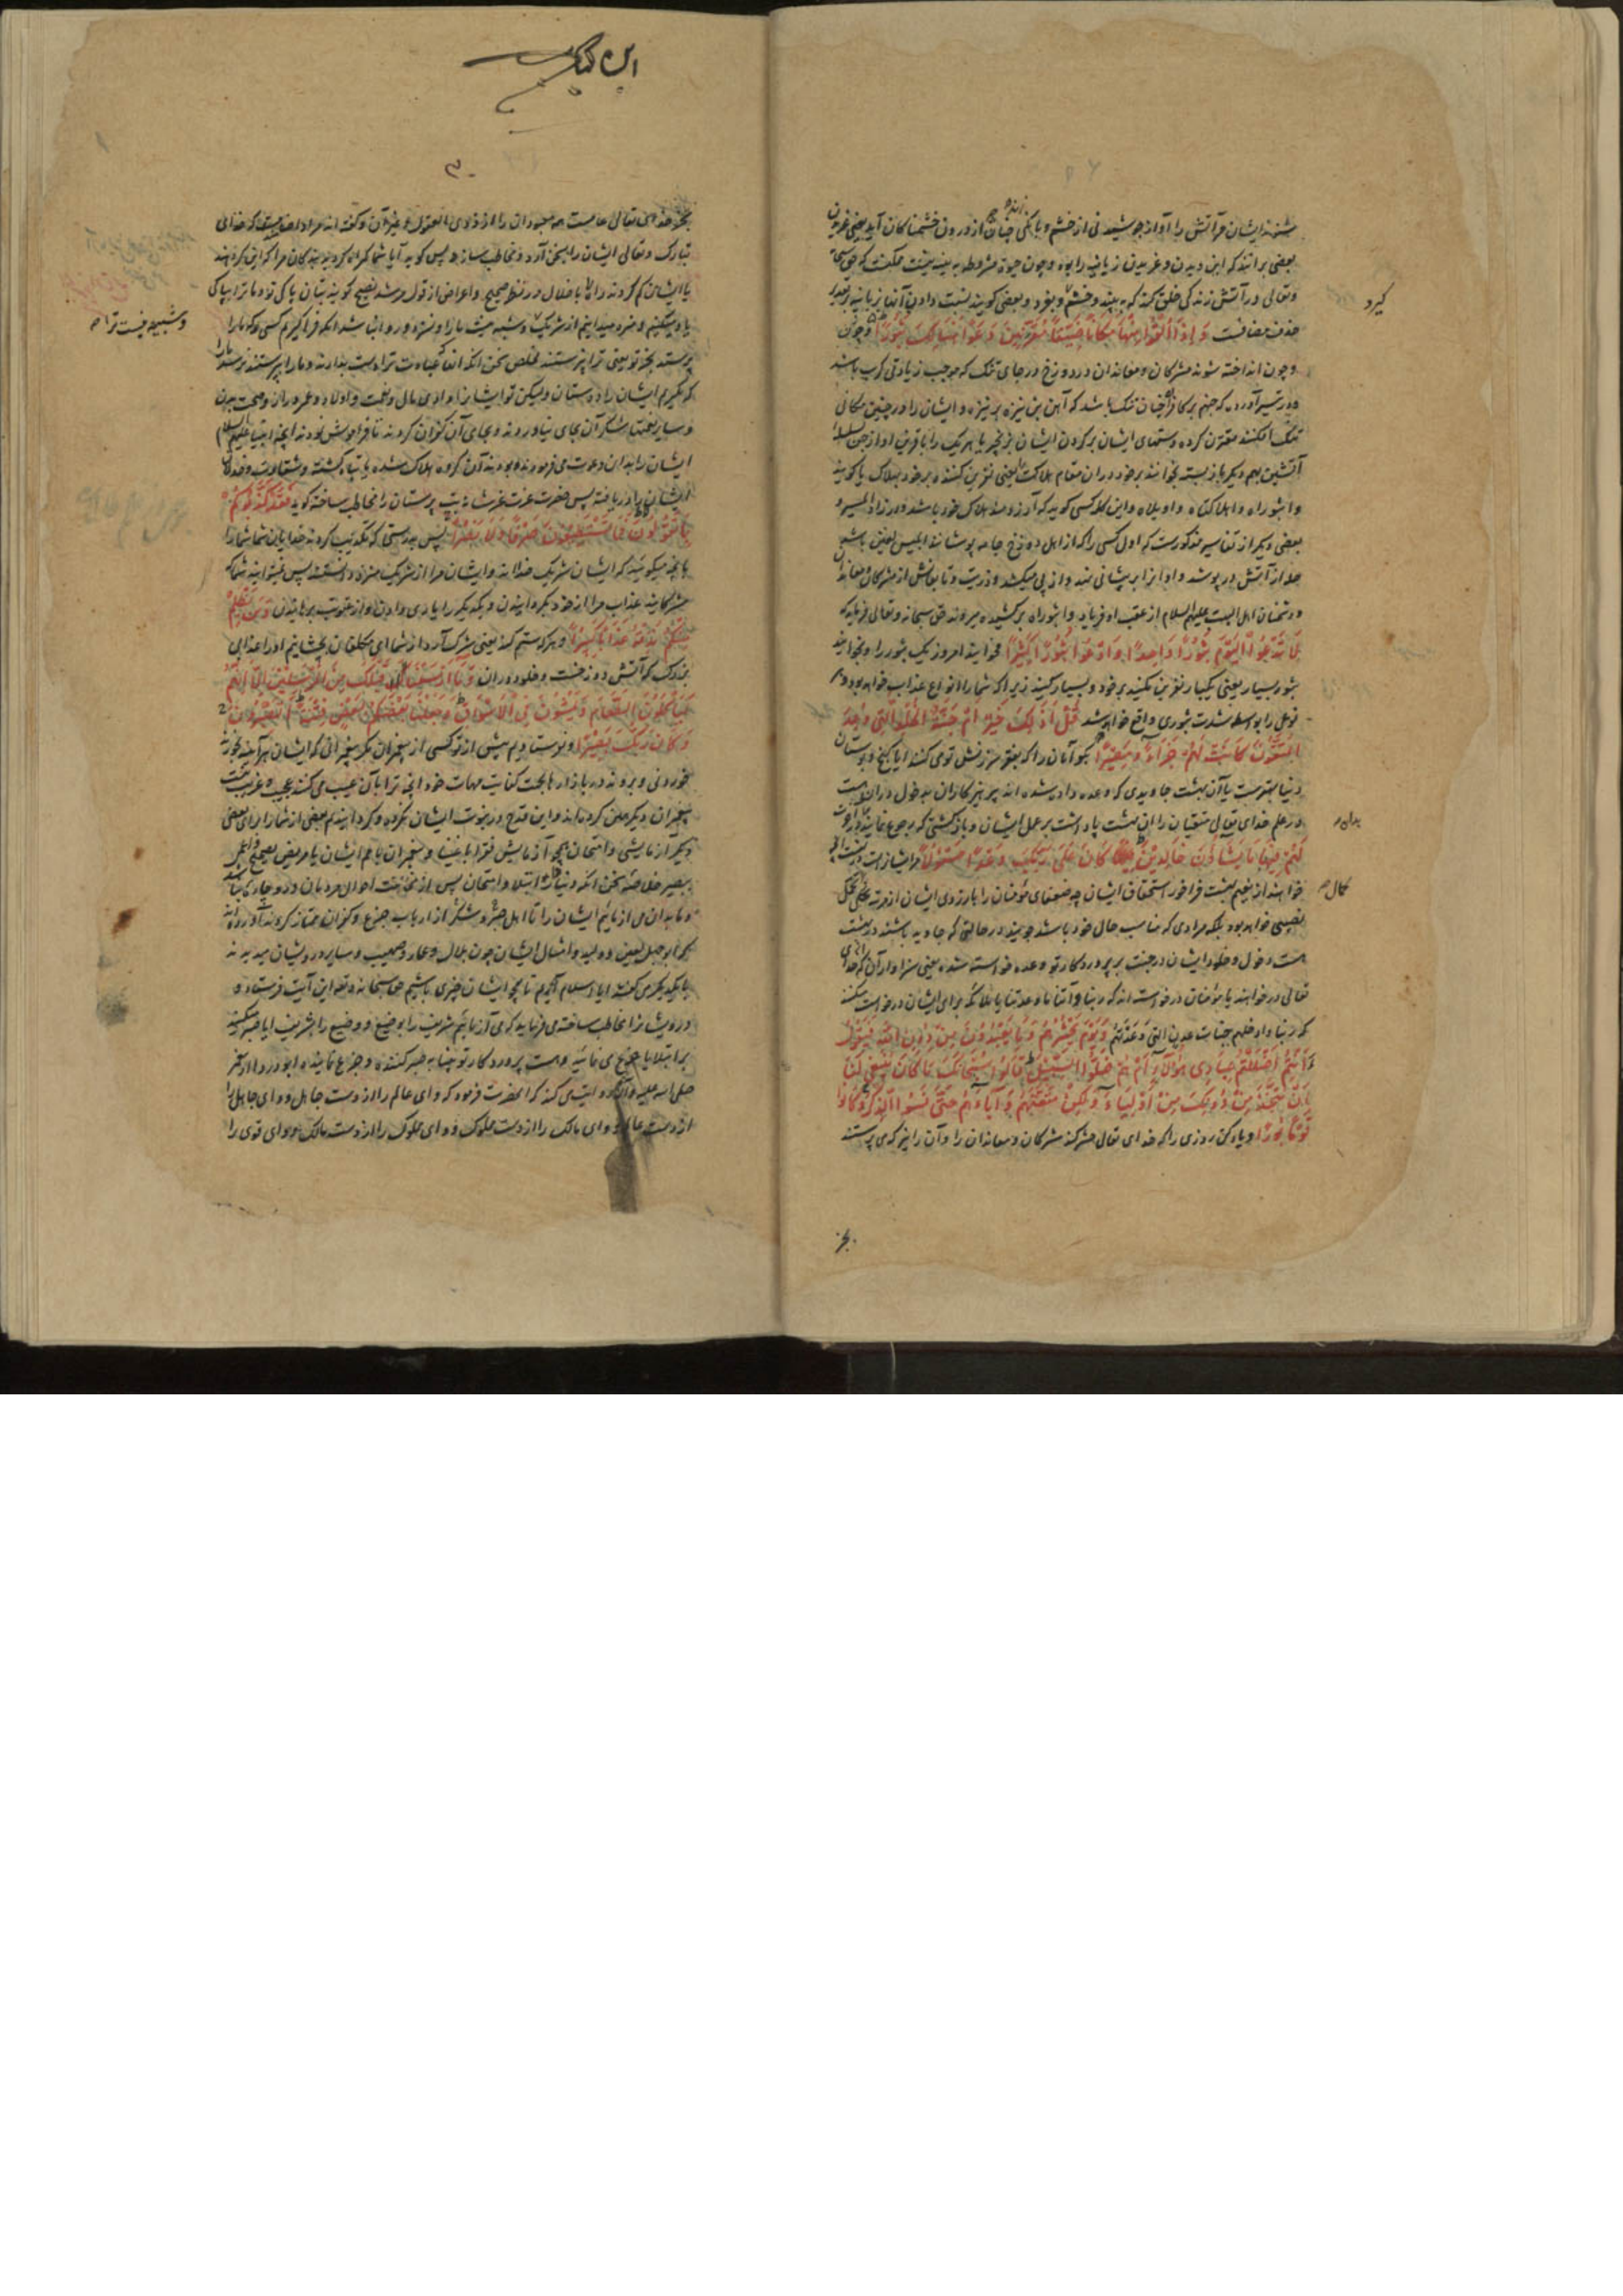 بشنوند ایشان مر آتش را آواز جوشیدنی از خشم و بانگی چنان از درون خشمناکان آید یعنی غریدن
بعضی برانند که این دیدن و غریدن زبانیه را بود و چون حیوة مشروط به بنیه نیست ممکنست که حق سبحانه
وتعالی در آتش زندگی خلق کند که به بیند و خشم و بغرد و بعضی گویند نسبت دادن آنها بزبانیه بتقدیر
حذف مضافست وَإِذَا أُلْقُوا مِنْهَا مَكَانًا ضَيِّقًا مُقَرَّنِينَ دَعَوْا هُنَالِكَ ثُبُورًا و چون
و چون انداخته شوند مشرکان و معاندان در دوزخ در جای تنگ که موجب زیادتی کرب باشد
و در تفسیر آورده که جهنم بر کافر چنان تنگ باشد که آهن بن نیزه بر نیزه و ایشان را در چنین مکانی
تنگ افکنند مقترن کرده دستهای ایشان بر گردن ایشان بزنجیر یا هر یک را با قرین او از جن بسلسلهٔ
آتشین بهم دیگر باز بسته بخوانند بر خود در آن مقام هلاکت یعنی نفرین کنند بر خود بهلاک یا گویند
وا ثبوراه وا هلاکتاه وا ویلاه و این کلمه کسی گوید که آرزومند هلاک خود باشد و در زاد المسیر و
بعضی دیگر از تفاسیر مذکورست که اول کسی را که از اهل دوزخ جامه پوشانند ابلیس لعین باشد
حله از آتش در پوشد و او انرا بر پیشانی نهد و از پی میکشد و ذریت و تابعانش از مشرکان و معاندان
و دشمنان اهل البیت علیهم السلام از عقب او فریاد وا ثبوراه برکشیده میروند حق سبحانه وتعالی فرماید که
لَا تَدْعُوا الْيَوْمَ ثُبُورًا وَاحِدًا وَادْعُوا ثُبُورًا كَثِيرًا مخوانید امروز یک ثبور را و بخوانید
ثبور بسیار یعنی یکبار نفرین مکنید بر خود و بسیار کنید زیرا که شما را انواع عذاب خواهد بود و هر
نوعی را بواسطه شدت ثبوری واقع خواهد شد قُلْ أَذَلِكَ خَيْرٌ أَمْ جَنَّةُ الْخُلْدِ الَّتِي وُعِدَ
الْمُتَّقُونَ كَانَتْ لَهُمْ جَزَاءً وَمَصِيرًا بگو آنان را که بفقر سرزنش تو می کنند آیا گنج و بوستان
دنیا بهترست یا آن بهشت جاویدی که وعده داده شده اند پرهیزکاران بدخول دران هست
در علم خدای تعالی متقیان را آن بهشت پاداشت بر عمل ایشان و بازگشتی که رجوع نمایند
لَهُمْ فِيهَا مَا يَشَاءُونَ خَالِدِينَ كَانَ عَلَى رَبِّكَ وَعْدًا مَسْئُولًا مر ایشانراست در بهشت آنچه
خواهند از نعیم بهشت فراخور استحقاق ایشان چه ضعفای مؤمنان را بارزوی ایشان از مرتبه
نصیبی نخواهد بود بلکه مرادی که مناسب حال خود باشد جویند در حالتی که جاوید باشند در بهشت
هست دخول و خلود ایشان در جنت بر پروردگار تو وعده خواسته شده یعنی سزاوار آن که خدای
تعالی درخواهند یا مؤمنان درخواسته اند که ربنا وآتنا ما وعدتنا یا ملائکه برای ایشان درخواست میکنند
که ربنا وادخلهم جنات عدن التی وعدتهم وَيَوْمَ يَحْشُرُهُمْ وَمَا يَعْبُدُونَ مِنْ دُونِ اللَّهِ فَيَقُولُ
ءَأَنْتُمْ أَضْلَلْتُمْ عِبَادِي هَؤُلَاءِ أَمْ هُمْ ضَلُّوا السَّبِيلَ قَالُوا سُبْحَانَكَ مَا كَانَ يَنْبَغِي لَنَا
أَنْ نَتَّخِذَ مِنْ دُونِكَ مِنْ أَوْلِيَاءَ وَلَكِنْ مَتَّعْتَهُمْ وَآبَاءَهُمْ حَتَّى نَسُوا الذِّكْرَ وَكَانُوا
قَوْمًا بُورًا و یاد کن روزی را که خدای تعالی حشر کند مشرکان و معاندان را و آن را نیز که می پرستند
بجز
گیرد
بدان
کمال
این کتاب
۳۰
بجز خدای تعالی عامست همه معبودان را از ذوی العقول و غیر آن و گفته اند مراد اصنامست که خدای
تبارک وتعالی ایشان را بسخن آرد و مخاطب سازد پس گوید آیا شما گمراه کردید بندگان مرا که این گروهند
یا ایشان گم کردند راه را باخلال در نظر صحیح و اعراض از قول مرشد نصیح گویند بتان پاکی ترا و ما ترا بپاکی
یاد میکنیم و منزه میدانیم از شریک و شبیه نیست ما را و نسزد و روا نباشد آنکه فرا گیریم کسی که ما را
پرستد بجز تو یعنی ترا نپرستند
و شبیه نیست ترا
که بگیریم ایشان را دوستان ولیکن تو ایشانرا دادی مال و نعمت و اولاد و عمر دراز و صحت بدن
و سایر نعمتها شکر آن بجای نیاوردند و بجای آن کفران کردند تا فراموش نمودند آنچه انبیا علیهم السلام
ایشان را بدان دعوت می فرمودند و بودند آن گروه هلاک شده یا تباه گشته و شقاوت و خذلان
ایشان را دریافته پس حضرت عزت عزشانه بت پرستان را مخاطب ساخته گوید فَقَدْ كَذَّبُوكُمْ
بِمَا تَقُولُونَ فَمَا تَسْتَطِيعُونَ صَرْفًا وَلَا نَصْرًا پس بدرستی که تکذیب کردند خدایان شما شما را
بانچه میگوئید که ایشان شریک خدااند و ایشان مرا از شریک منزه دانستند پس نتوانید شما که
مشرکانید عذاب مرا از خود بگردانیدن و یکدیگر را یاری دادن و از عقوبت برهانیدن وَمَنْ يَظْلِمْ
مِنْكُمْ نُذِقْهُ عَذَابًا كَبِيرًا و هر که ستم کند یعنی شرک آرد از شما ای مکلفان بچشانیم او را عذابی
بزرگ که آتش دوزخست و خلود دران وَمَا أَرْسَلْنَا قَبْلَكَ مِنَ الْمُرْسَلِينَ إِلَّا إِنَّهُمْ
لَيَأْكُلُونَ الطَّعَامَ وَيَمْشُونَ فِي الْأَسْوَاقِ وَجَعَلْنَا بَعْضَكُمْ لِبَعْضٍ فِتْنَةً أَتَصْبِرُونَ
وَكَانَ رَبُّكَ بَصِيرًا و نفرستادیم پیش از تو کسی از پیغمبران مگر پیغمبرانی که ایشان هرآینه بخورند
خوردنی و بروند در بازارها بجهت کفایت مهمات خود آنچه ترا بآن عیب می کنند عجیب و غریب نیست
پیغمبران دیگر همین کرده اند و این قدح در نبوت ایشان نکرده و گردانیدیم بعضی از شما را برای بعضی
دیگر آزمایشی و امتحان همچو آزمایش فقرا باغنیا و پیغمبران بامم ایشان یا مریض بصحیح و اعمی
ببصیر خلاصه سخن آنکه دنیا دار ابتلا و امتحان
و ما بدان می آزمائیم ایشان را تا اهل صبر و شکر از ارباب جزع و کفران ممتاز گردند آورده اند
که ابوجهل لعین و ولید و امثال ایشان چون بلال و عمار و صهیب و سایر درویشان میدیدند
با یکدیگر می گفتند آیا اسلام آریم تا همچو ایشان فقیری باشیم حق سبحانه وتعالی این آیت فرستاد و
درویشانرا مخاطب ساخته می فرماید که می آزمائیم شریف را بوضیع و وضیع را بشریف آیا صبر میکنید
بر ابتلا یا جزع می نمائید و هست پروردگار تو بینا به صبر کننده و جزع نماینده ابو دردا از پیغمبر
صلی الله علیه وآله روایت می کند که آنحضرت فرمود که وای عالم را از دست جاهل و وای جاهل را
از دست عالم و وای مالک را از دست مملوک و وای مملوک را از دست مالک و وای قوی را